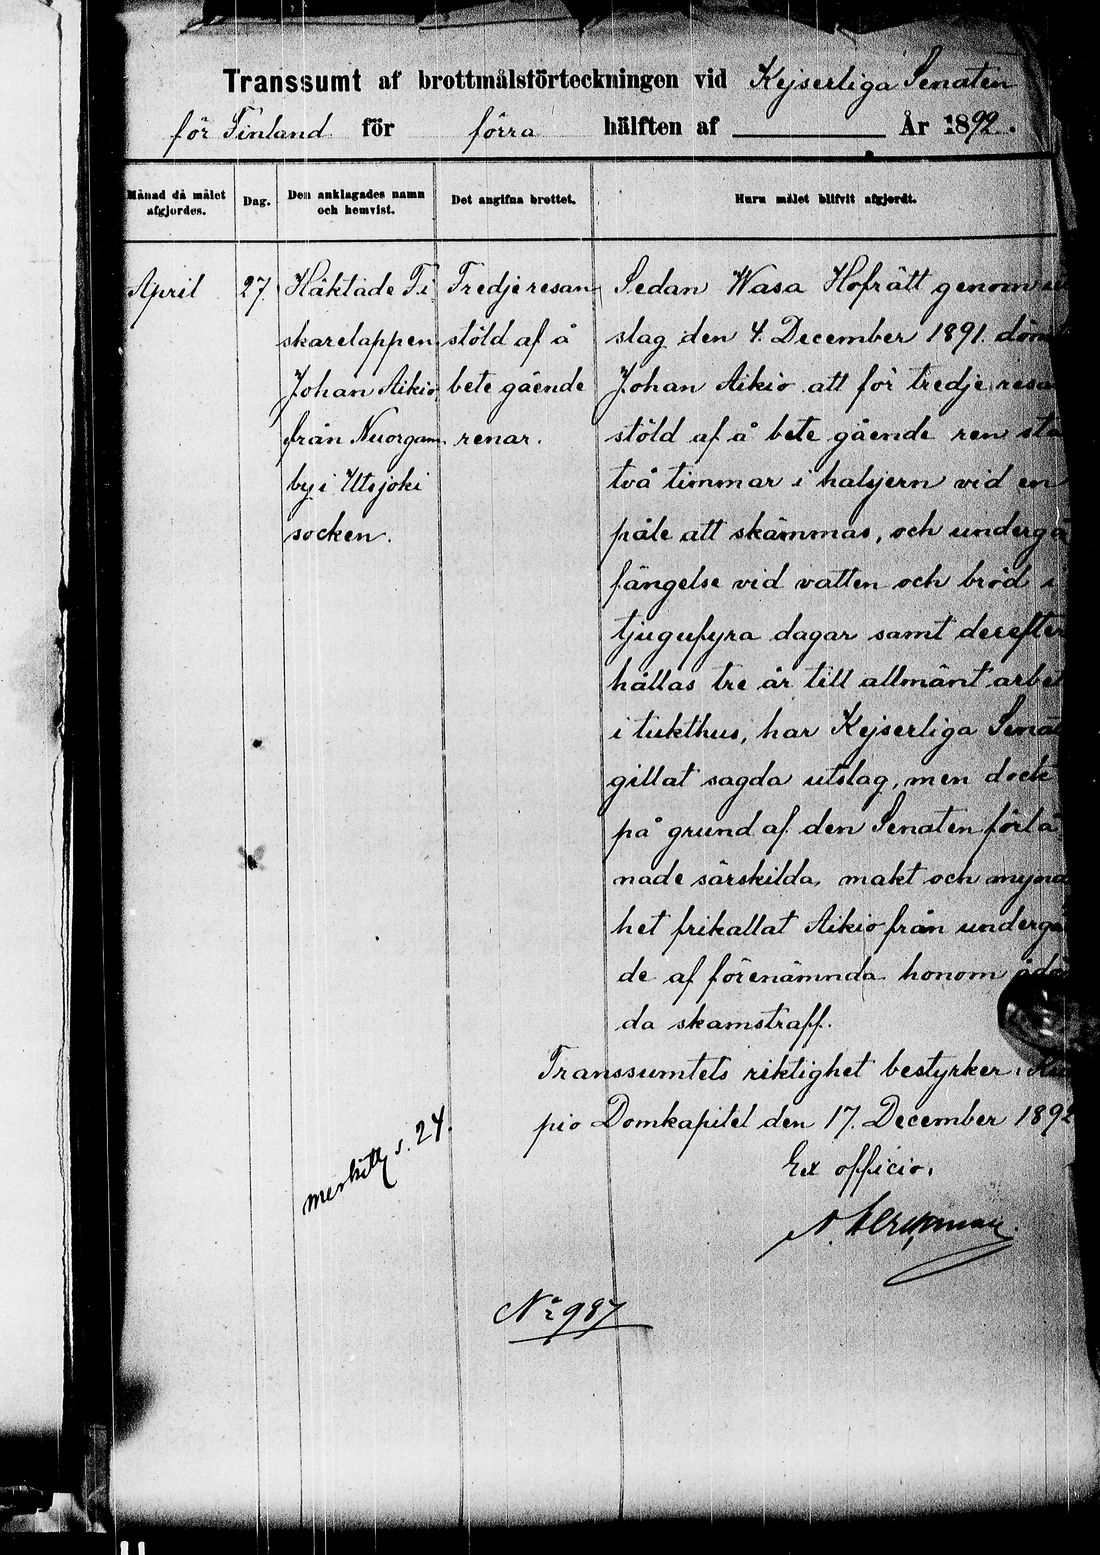 Transsumt af brottmålsförteckningen vid Kejserliga Senaten
för Finland för förra hälften af År 1892.
Månad då målet afgjordes.
Dag.
Den anklagades namn och hemvist.
Det angifna brottet.
Huru målet blifvit afgjordt.
April
27
Häktade Fi
skarelappen
Johan Aikio
från Nuorgam
by i Utsjoki
socken.
Tredje resan
stöld af å
bete gående
renar.
Sedan Wasa Hofrätt genom ut
slag den 4. December 1891. dömt
Johan Aikio att för tredje resan
stöld af å bete gående ren stå
två timmar i halsjern vid en
påle att skämmas, och undergå
fängelse vid vatten och bröd i
tjugufyra dagar samt derefter
hållas tre år till allmänt arbet
i tukthus, har Kejserliga Senat
gillat sagda utslag, men dock
på grund af den Senaten förlä
nade särskilda makt och mynd
het frikallat Aikio från undergå
de af förenämnda honom ådö
da skamstraff.
Transsumtets riktighet bestyrker. Kuo
pio Domkapitel den 17. December 1892
Ex officio,
merkitty s. 24.
No 987